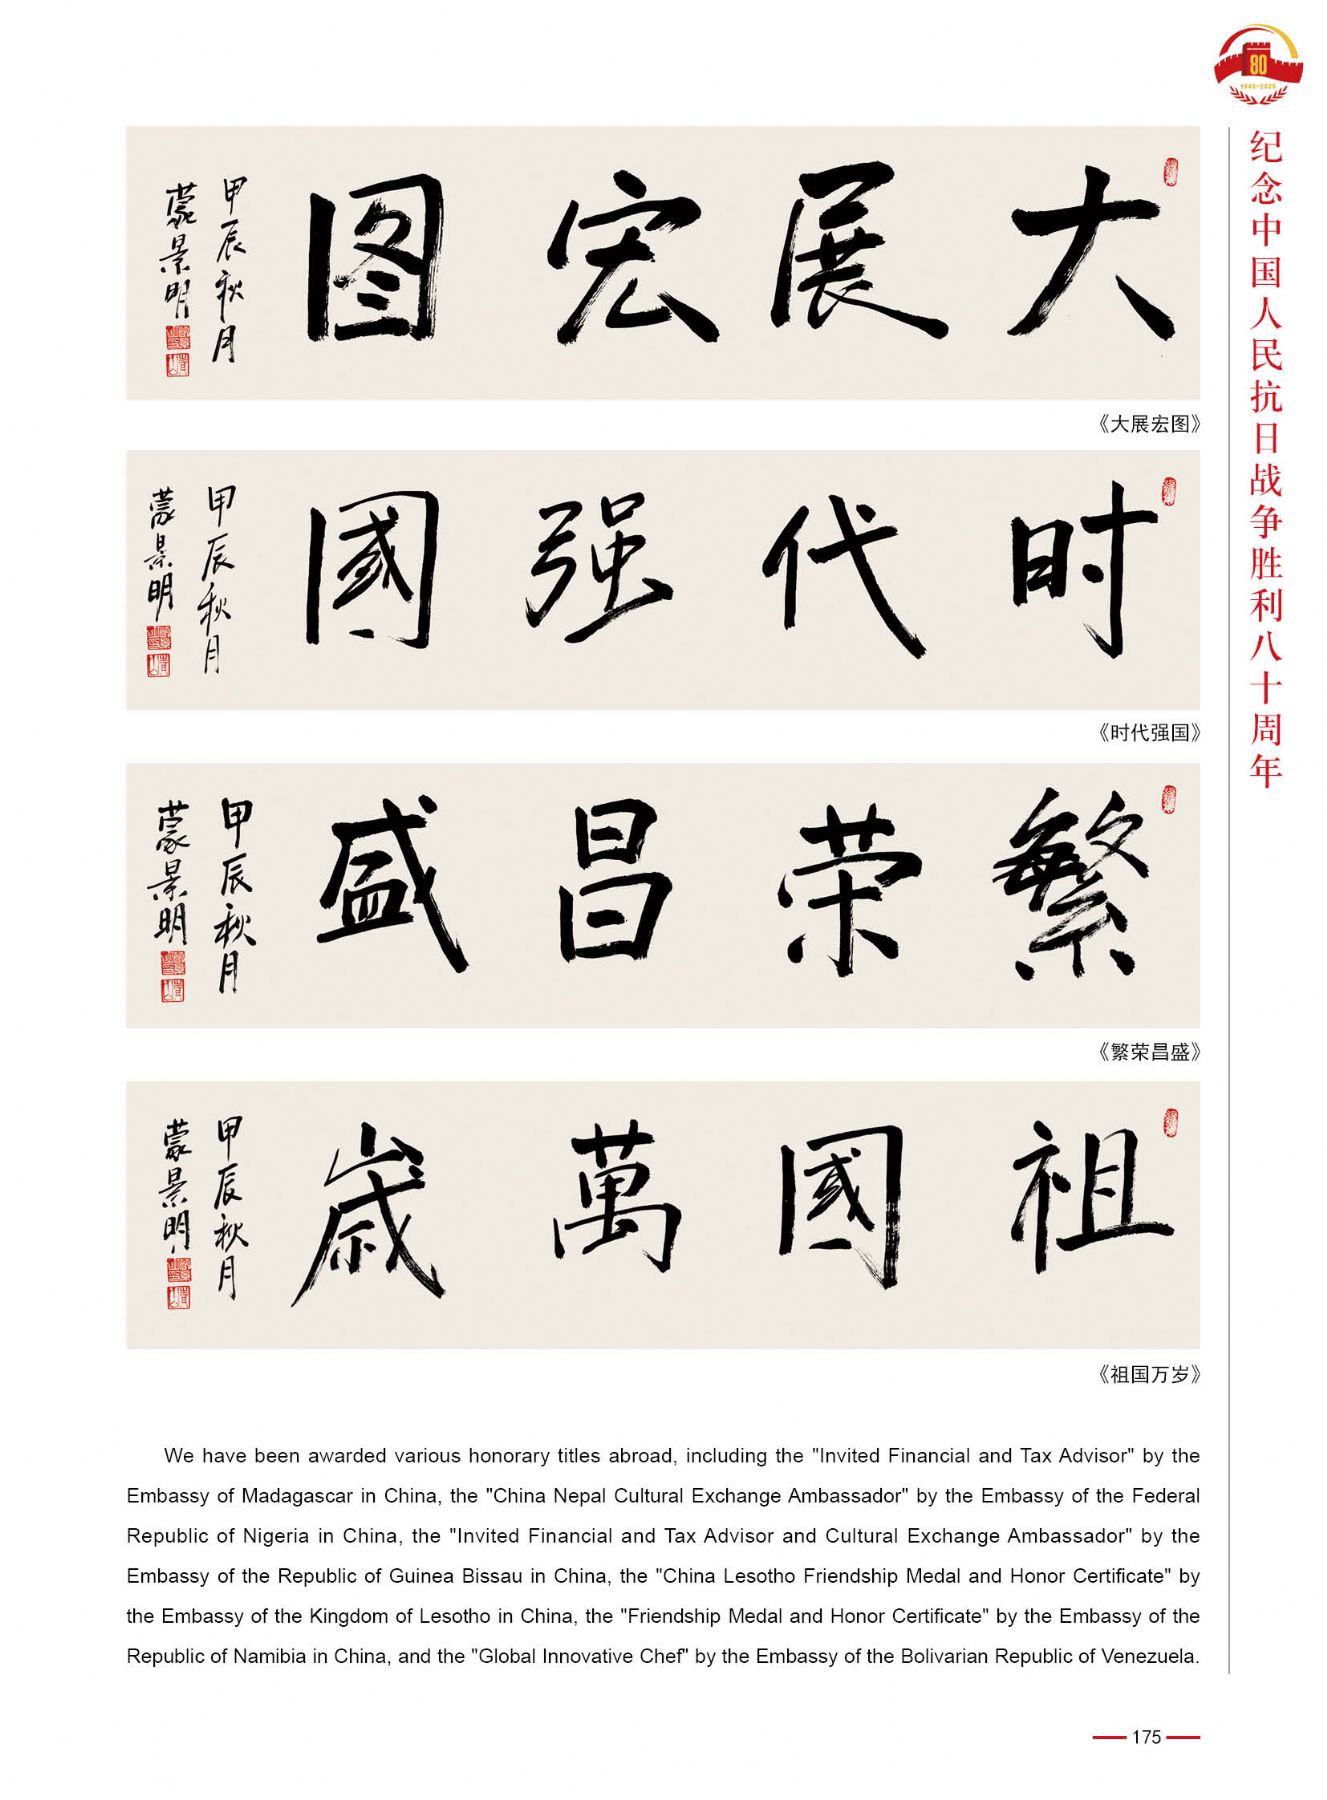 80
1945-2025
纪念中国人民抗日战争胜利八十周年
大展宏图
甲辰秋月
蒙景明
《大展宏图》
时代强國
甲辰秋月
蒙景明
《时代强国》
繁荣昌盛
甲辰秋月
蒙景明
《繁荣昌盛》
祖國萬歲
甲辰秋月
蒙景明
《祖国万岁》
We have been awarded various honorary titles abroad, including the "Invited Financial and Tax Advisor" by the
Embassy of Madagascar in China, the "China Nepal Cultural Exchange Ambassador" by the Embassy of the Federal
Republic of Nigeria in China, the "Invited Financial and Tax Advisor and Cultural Exchange Ambassador" by the
Embassy of the Republic of Guinea Bissau in China, the "China Lesotho Friendship Medal and Honor Certificate" by
the Embassy of the Kingdom of Lesotho in China, the "Friendship Medal and Honor Certificate" by the Embassy of the
Republic of Namibia in China, and the "Global Innovative Chef" by the Embassy of the Bolivarian Republic of Venezuela.
175